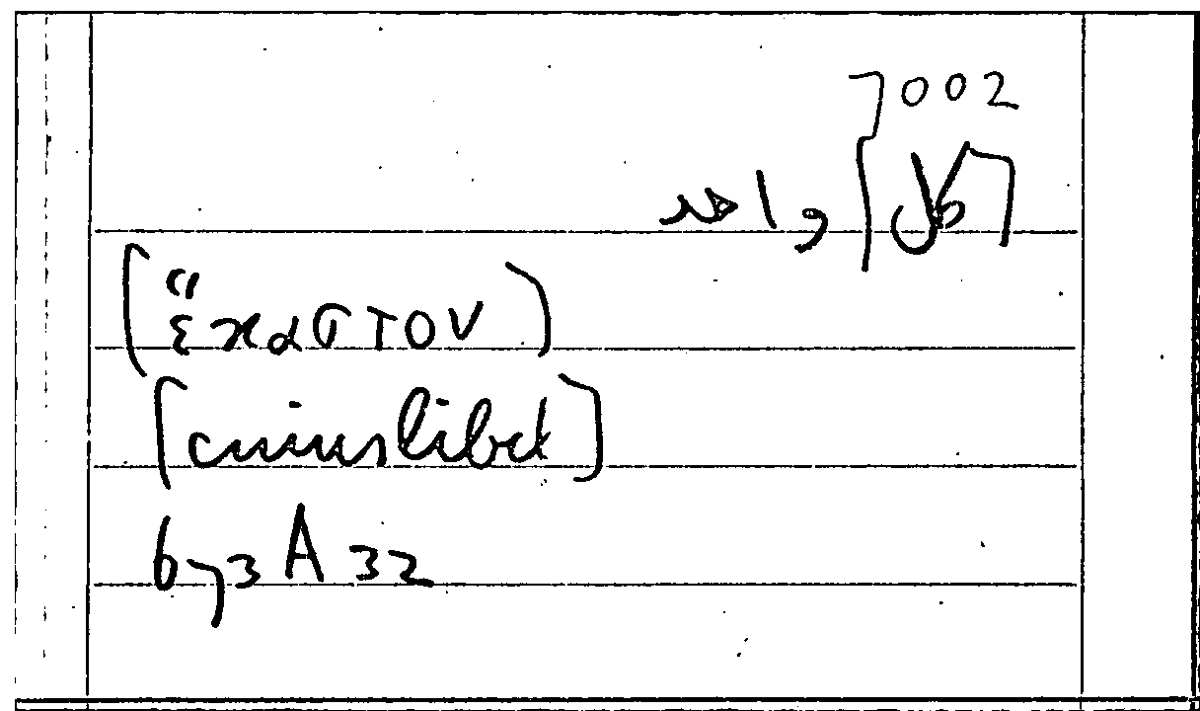 7002
[كل] واحد
(ἕκαστον)
[cuiuslibet]
673A32